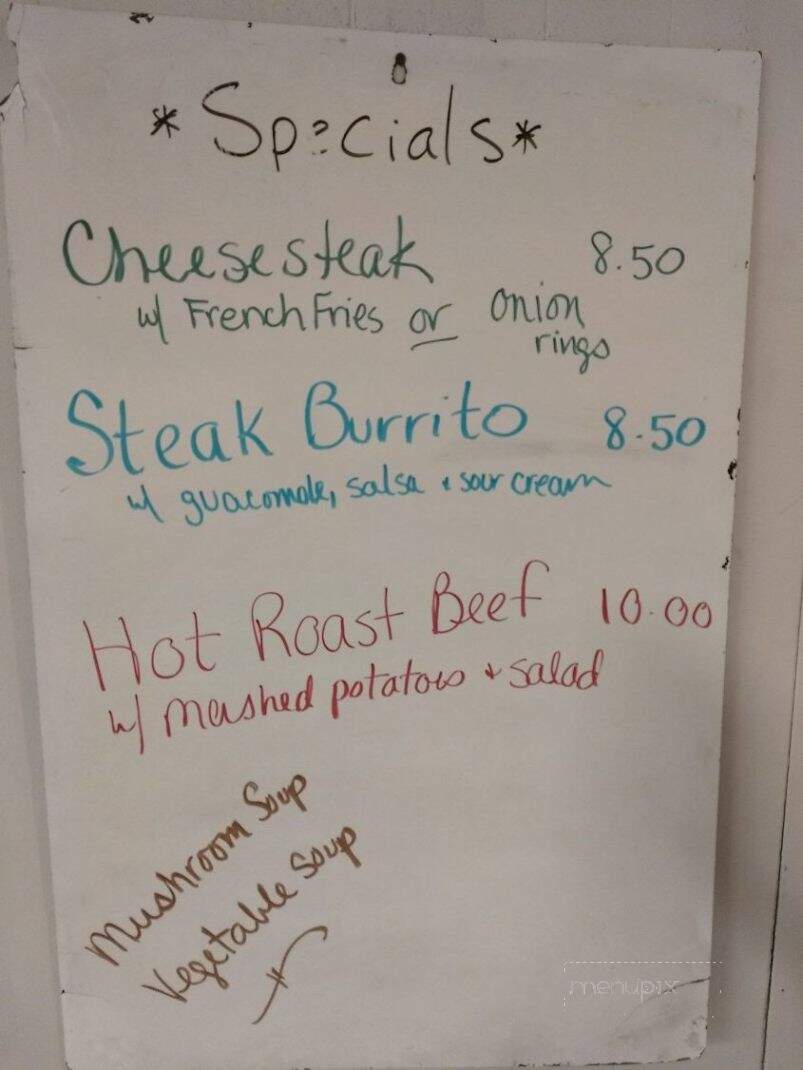 *Specials*
Cheesesteak 8.50
w/ French Fries or onion
rings
Steak Burrito 8.50
w/ guacomole, salsa + sour cream
Hot Roast Beef 10.00
w/ mashed potatoes + salad
Mushroom Soup
Vegetable Soup
menupix